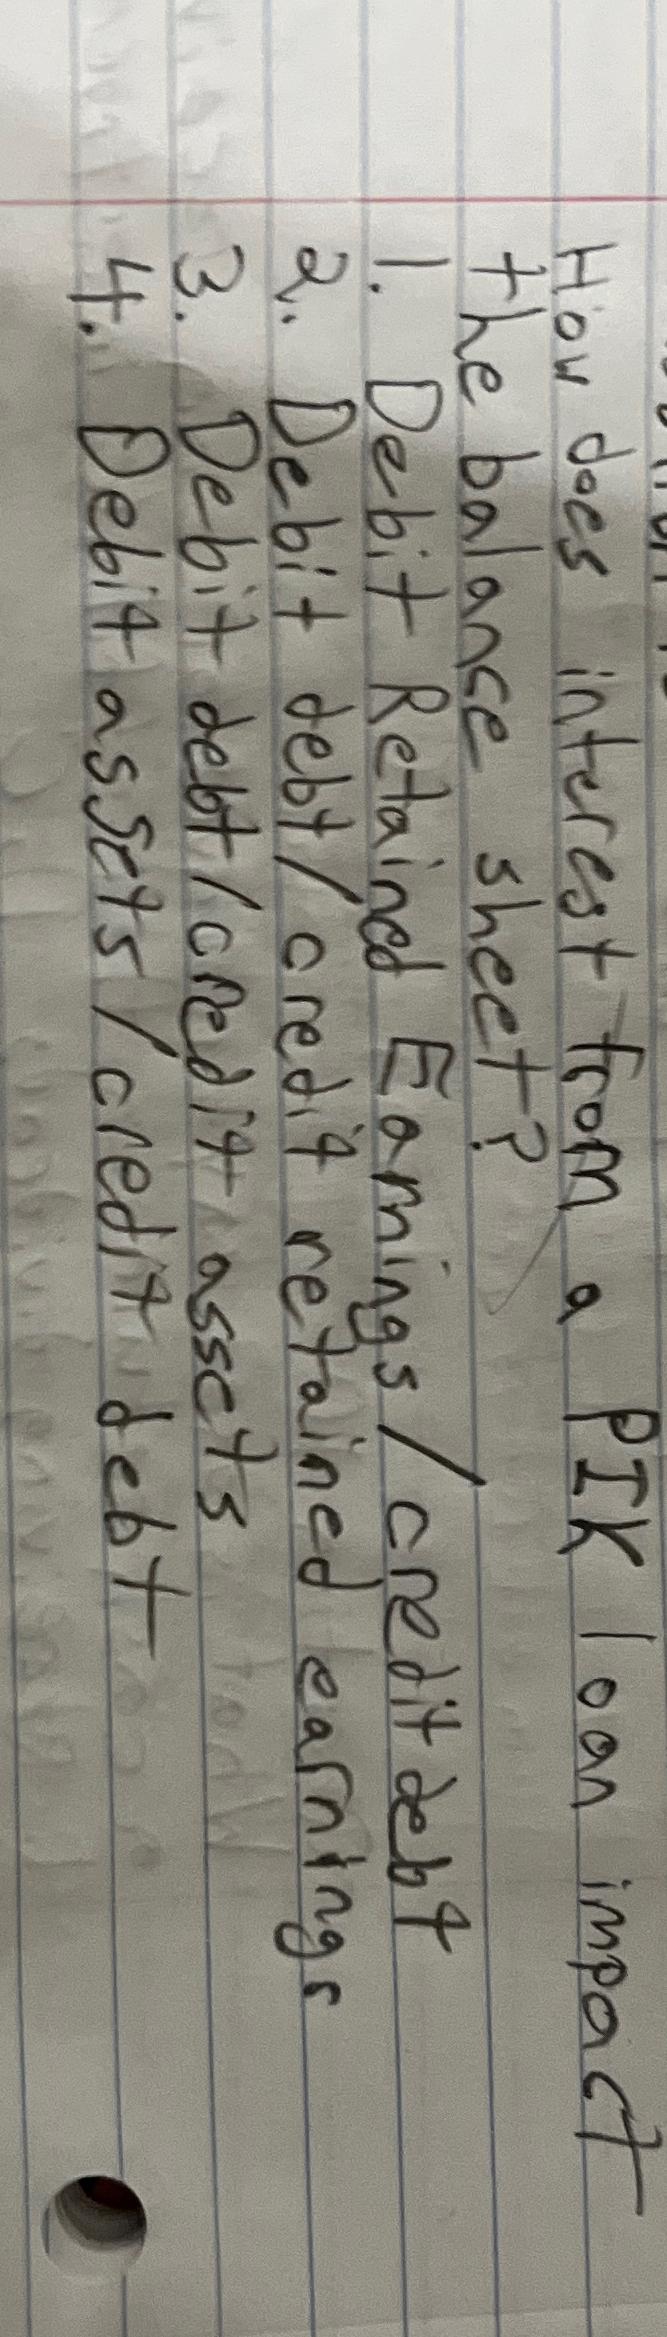 How does interest from a PIK loan impact
the balance sheet?
1. Debit Retained Earnings / credit debt
2. Debit debt / credit retained earnings
3. Debit debt / credit assets
4. Debit assets / credit debt